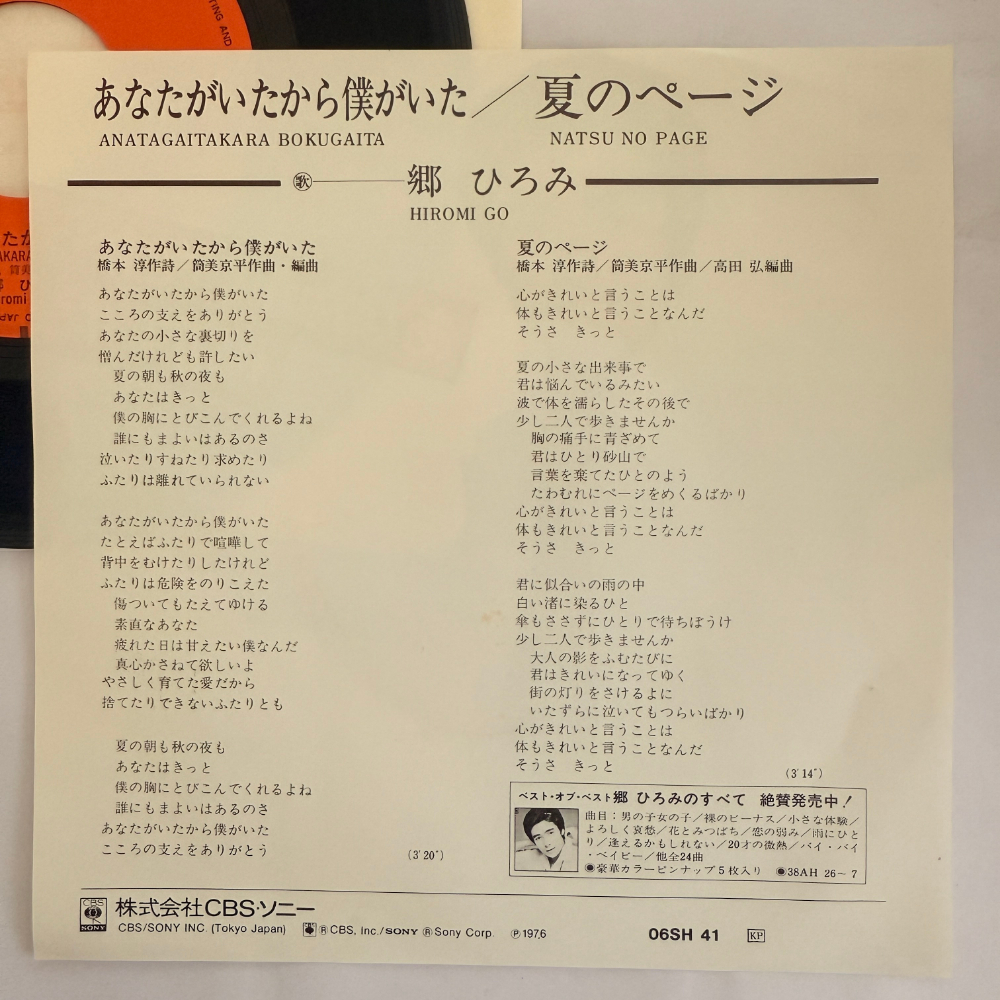 TING AND
あなたがいたから僕がいた／夏のページ
ANATAGAITAKARA BOKUGAITA
NATSU NO PAGE
歌 郷 ひろみ
HIROMI GO
あなたがいたから僕がいた
橋本 淳作詩／筒美京平作曲・編曲
あなたがいたから僕がいた
こころの支えをありがとう
あなたの小さな裏切りを
憎んだけれども許したい
夏の朝も秋の夜も
あなたはきっと
僕の胸にとびこんでくれるよね
誰にもまよいはあるのさ
泣いたりすねたり求めたり
ふたりは離れていられない
あなたがいたから僕がいた
たとえばふたりで喧嘩して
背中をむけたりしたけれど
ふたりは危険をのりこえた
傷ついてもたえてゆける
素直なあなた
疲れた日は甘えたい僕なんだ
真心かさねて欲しいよ
やさしく育てた愛だから
捨てたりできないふたりとも
夏の朝も秋の夜も
あなたはきっと
僕の胸にとびこんでくれるよね
誰にもまよいはあるのさ
あなたがいたから僕がいた
こころの支えをありがとう
(3′20″)
夏のページ
橋本 淳作詩／筒美京平作曲／高田 弘編曲
心がきれいと言うことは
体もきれいと言うことなんだ
そうさ きっと
夏の小さな出来事で
君は悩んでいるみたい
波で体を濡らしたその後で
少し二人で歩きませんか
胸の痛手に青ざめて
君はひとり砂山で
言葉を棄てたひとのよう
たわむれにページをめくるばかり
心がきれいと言うことは
体もきれいと言うことなんだ
そうさ きっと
君に似合いの雨の中
白い渚に染るひと
傘もささずにひとりで待ちぼうけ
少し二人で歩きませんか
大人の影をふむたびに
君はきれいになってゆく
街の灯りをさけるよに
いたずらに泣いてもつらいばかり
心がきれいと言うことは
体もきれいと言うことなんだ
そうさ きっと
(3′14″)
ベスト・オブ・ベスト郷 ひろみのすべて 絶賛発売中！
曲目：男の子女の子／裸のビーナス／小さな体験／
よろしく哀愁／花とみつばち／恋の弱み／雨にひと
り／逢えるかもしれない／20才の微熱／バイ・バイ
・ベイビー／他全24曲
●豪華カラーピンナップ5枚入り ●38AH 26～7
CBS
SONY
株式会社CBS・ソニー
CBS/SONY INC. (Tokyo Japan)
®CBS, Inc./SONY ®Sony Corp. ℗1976
06SH 41
KP